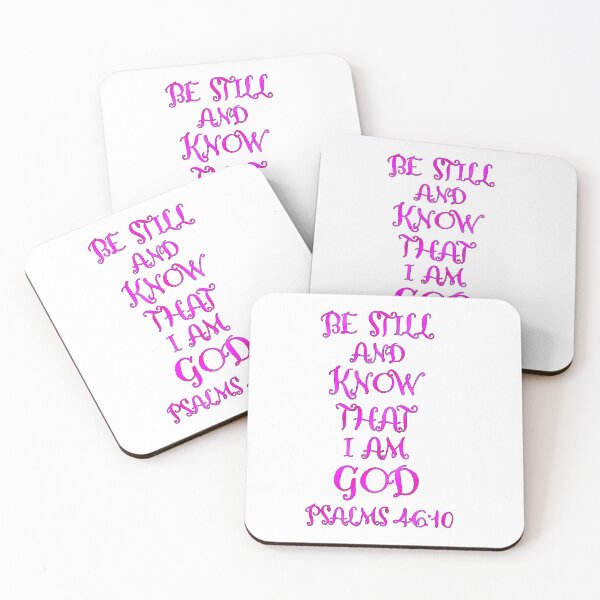 BE STILL
AND
KNOW
THAT
BE STILL
AND
KNOW
THAT
I AM
GOD
BE STILL
AND
KNOW
THAT
I AM
GOD
PSALMS
BE STILL
AND
KNOW
THAT
I AM
GOD
PSALMS 46:10